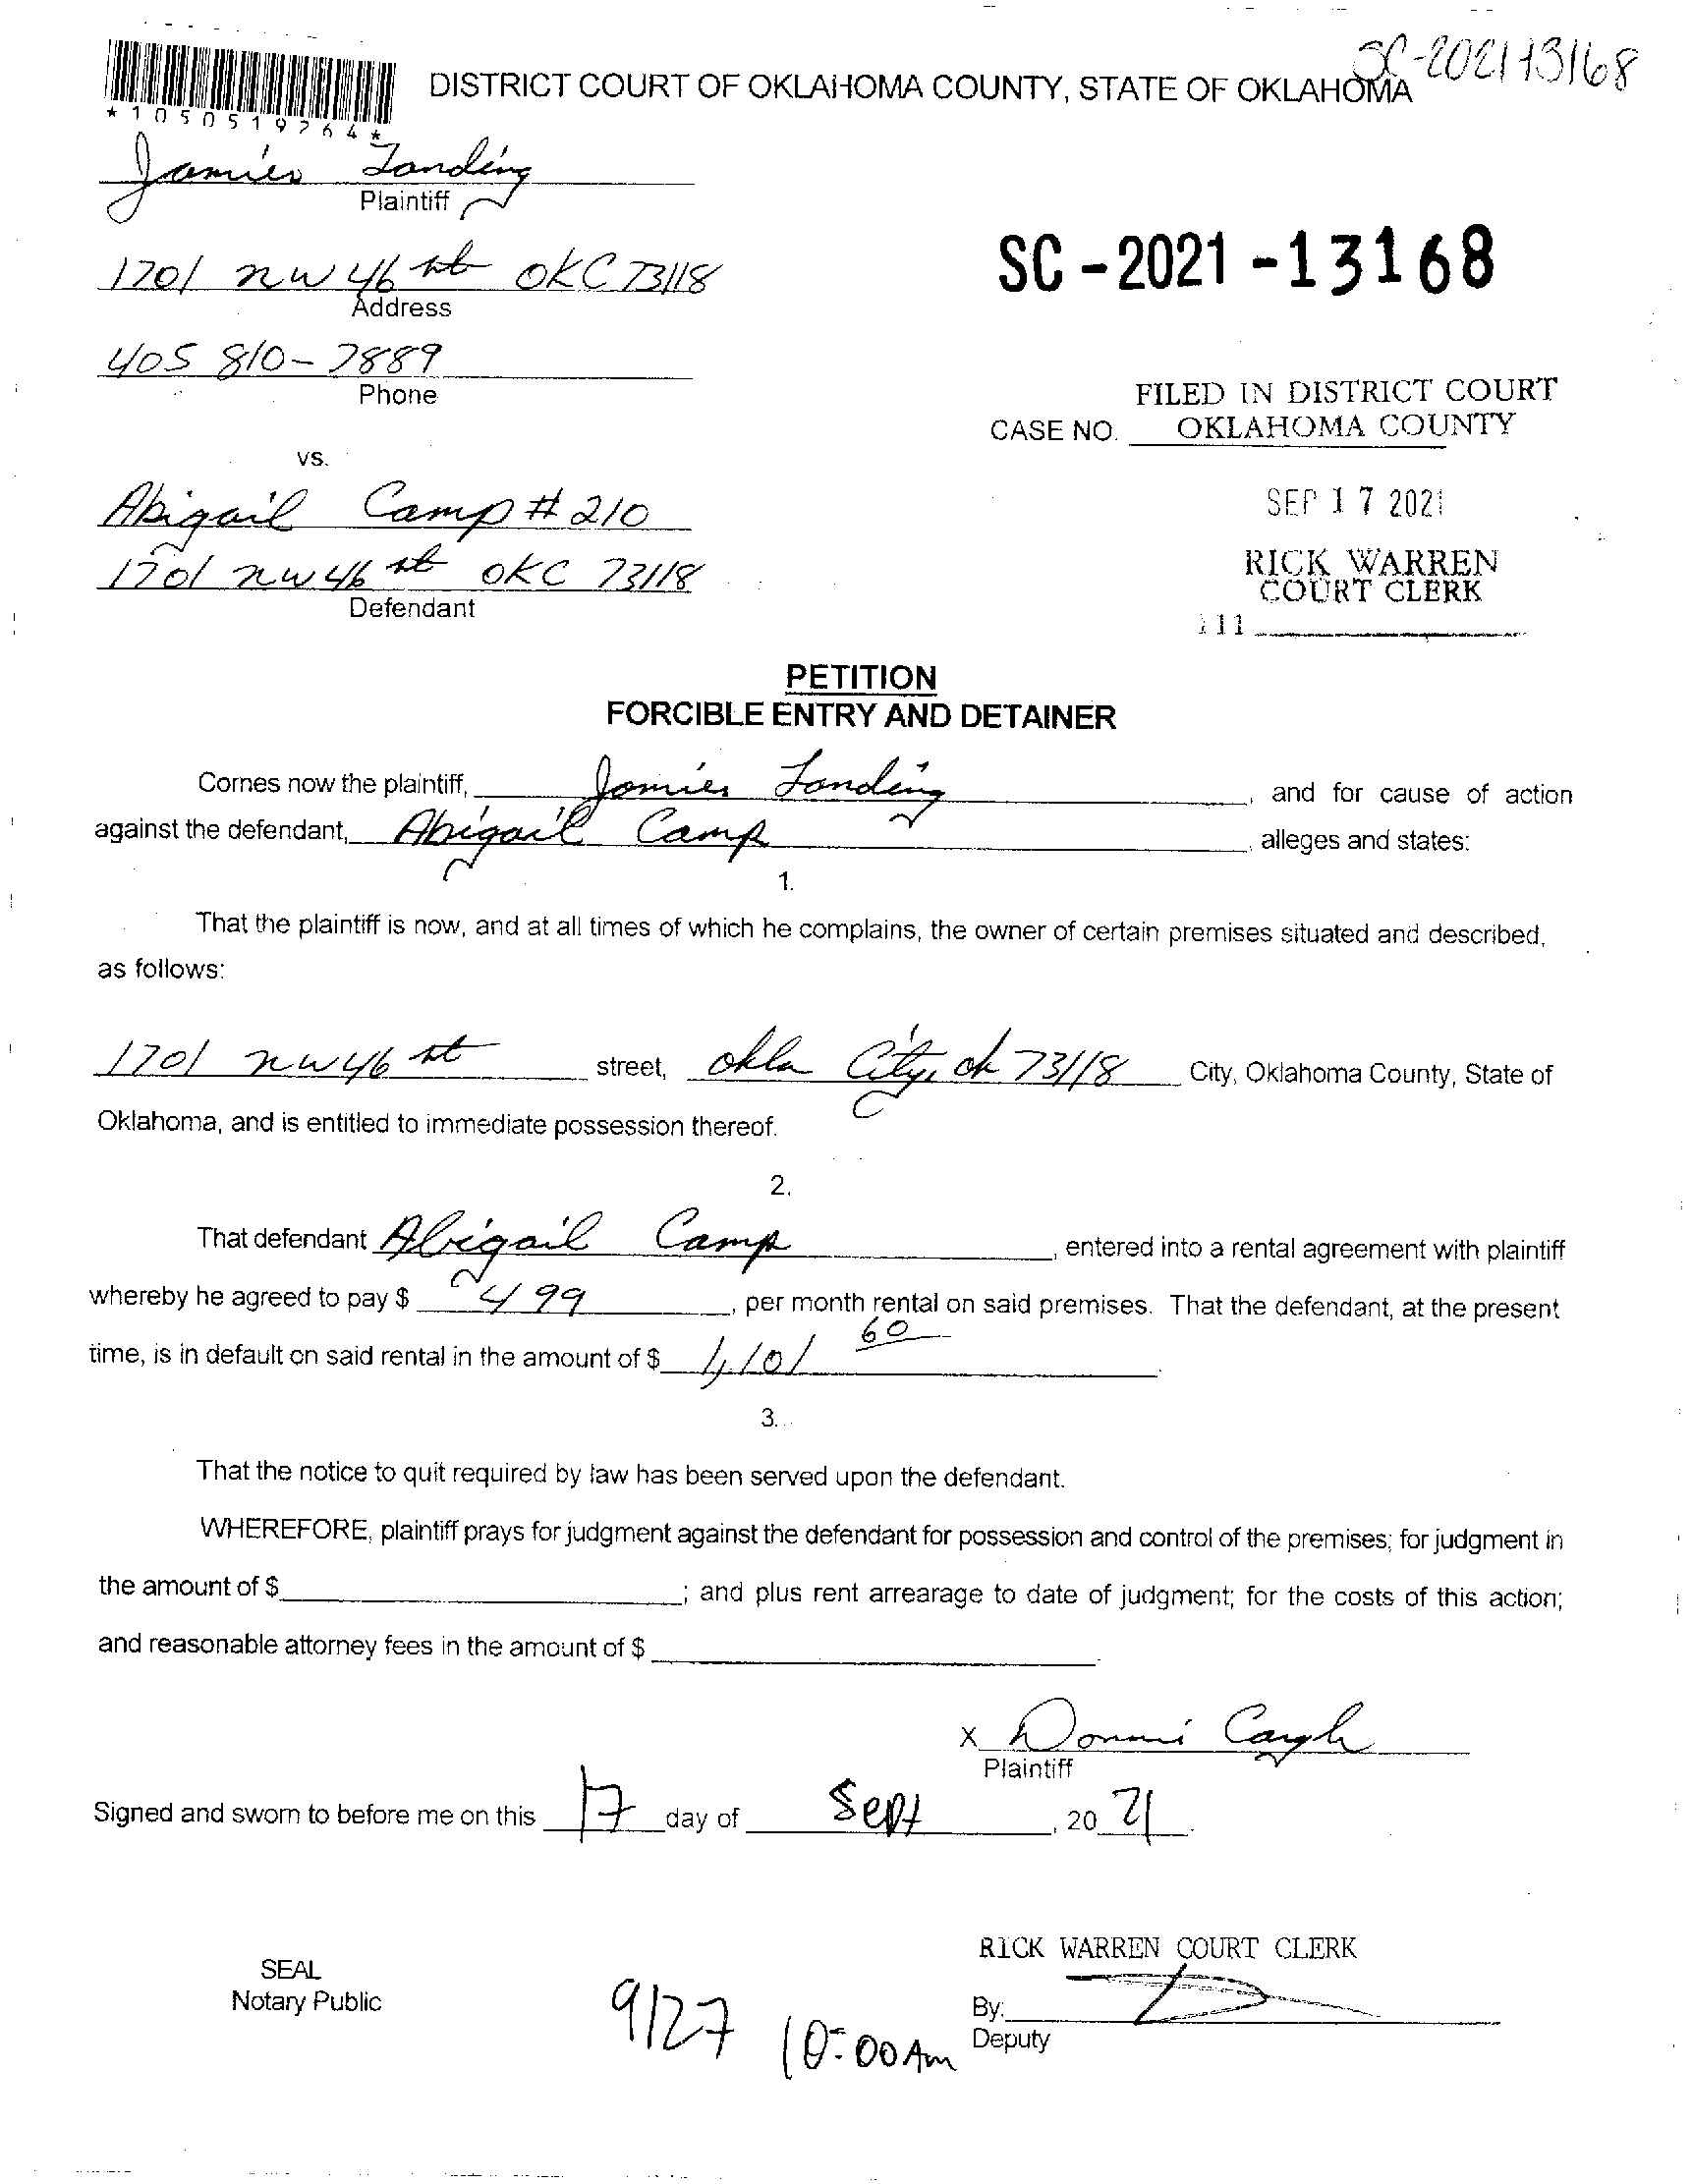 SC-2021-13168
DISTRICT COURT OF OKLAHOMA COUNTY, STATE OF OKLAHOMA
*1050519764*
Jamies Landing
Plaintiff
1701 nw 46 st OKC 73118
Address
SC-2021-13168
405 810-7889
Phone
FILED IN DISTRICT COURT
CASE NO. OKLAHOMA COUNTY
vs.
Abigail Camp # 210
SEP 17 2021
1701 nw 46 st OKC 73118
Defendant
RICK WARREN
COURT CLERK
111
PETITION
FORCIBLE ENTRY AND DETAINER
Comes now the plaintiff, Jamies Landing, and for cause of action
against the defendant, Abigail Camp, alleges and states:
1.
That the plaintiff is now, and at all times of which he complains, the owner of certain premises situated and described,
as follows:
1701 nw 46 st street, okla City, ok 73118 City, Oklahoma County, State of
Oklahoma, and is entitled to immediate possession thereof.
2.
That defendant Abigail Camp, entered into a rental agreement with plaintiff
whereby he agreed to pay $ 499, per month rental on said premises. That the defendant, at the present
time, is in default on said rental in the amount of $ 1,101 60.
3.
That the notice to quit required by law has been served upon the defendant.
WHEREFORE, plaintiff prays for judgment against the defendant for possession and control of the premises; for judgment in
the amount of $ ; and plus rent arrearage to date of judgment; for the costs of this action;
and reasonable attorney fees in the amount of $ .
X Donni
Plaintiff
Signed and sworn to before me on this 17 day of Sept, 20 21.
RICK WARREN COURT CLERK
SEAL
Notary Public
By:
Deputy
9/27 10:00 Am